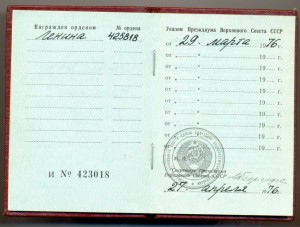 Награжден орденом № ордена
Ленина 425818
И № 423018
Указом Президиума Верховного Совета СССР
от „29" марта 1976 г.
от „ " 19 г.
от „ " 19 г.
от „ " 19 г.
от „ " 19 г.
от „ " 19 г.
от „ " 19 г.
от „ " 19 г.
от „ " 19 г.
Секретарь Президиума
Верховного Совета СССР
„27" апреля 1976 г.